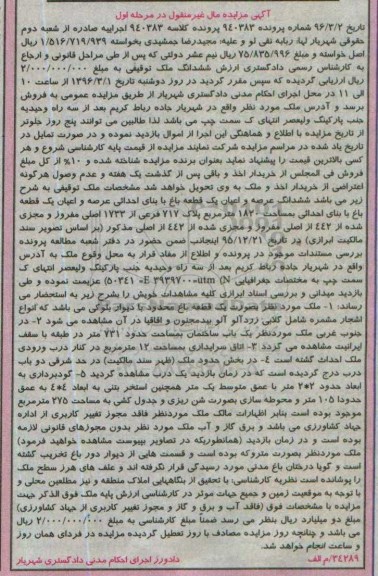 آگهی مزایده مال غیرمنقول در مرحله اول
تاریخ ۹۶/۳/۲ شماره پرونده ۹۴۰۳۸۳ پرونده کلاسه ۹۴۰۳۸۳ اجراییه صادره از شعبه دوم
حقوقی شهریار لها: ربابه تقی لو و علیه: مجیدرضا جمشیدی بخواسته ۱/۵۱۶/۷۱۹/۹۳۹ ریال
اصل خواسته و مبلغ ۷۵/۸۳۵/۹۹۶ ریال نیم عشر دولتی که پس از طی مراحل قانونی و ارجاع
به کارشناس رسمی دادگستری ارزش ششدانگ ملک توقیفی به مبلغ ۲/۰۰۰/۰۰۰/۰۰۰
ریال ارزیابی گردیده که سپس مقرر گردید در روز دوشنبه تاریخ ۱۳۹۶/۳/۱ از ساعت ۱۰
الی ۱۱ در محل اجرای احکام مدنی دادگستری شهریار از طریق مزایده عمومی به فروش
برسد و آدرس ملک مورد نظر واقع در شهریار جاده رباط کریم بعد از سه راه وحیدیه
جنب پارکینگ ولیعصر انتهای ک سمت چپ می باشد لذا طالبین می توانند پنج روز جلوتر
از تاریخ مزایده با اطلاع و هماهنگی این اجرا از اموال بازدید نموده و در صورت تمایل در
تاریخ یاد شده در مراسم مزایده شرکت نمایند مزایده از قیمت پایه کارشناسی شروع و هر
کسی بالاترین قیمت را پیشنهاد نماید بعنوان برنده مزایده شناخته شده و ۱۰% از کل مبلغ
فروش فی المجلس از خریدار اخذ و باقی پس از گذشت یک هفته و عدم وصول هرگونه
اعتراضی از خریدار اخذ و ملک به وی تحویل خواهد شد مشخصات ملک توقیفی به شرح
زیر می باشد ششدانگ عرصه و اعیان یک قطعه باغ با بنای احداثی عرصه و اعیان یک قطعه
باغ با بنای احداثی بمساحت ۱۸۲۰ مترمربع پلاک ۷۱۷ فرعی از ۱۷۳۳ اصلی مفروز و مجزی
شده از ۴۴۲ از اصلی مفروز و مجزی شده از ۴۴۲ از اصلی مذکور (بر اساس تصویر سند
مالکیت ابرازی) در تاریخ ۹۵/۱۲/۲۱ اینجانب ضمن حضور در دفتر شعبه مطالعه پرونده
بررسی مستندات موجود در پرونده و اطلاع از مفاد قرار به محل وقوع ملک به آدرس
واقع در شهریار جاده رباط کریم بعد از سه راه وحیدیه جنب پارکینگ ولیعصر انتهای ک
سمت چپ به مختصات جغرافیایی utm (N۳۹۳۹۷۰۰-E ۵۰۳۴۱۰) عزیمت نموده و طی
بازدید میدانی و بررسی اسناد ابرازی کلیه مشاهدات خویش را بشرح زیر به استحضار می
رساند: ۱- ملک مورد نظر بصورت یک قطعه باغ محدود با دیوار بلوکی می باشد که انواع
اشجار مشمره شامل گلابی زردآلو آلو بیدمجنون و اقاقیا در آن مشاهده می شود ۲- در
جنوب غربی ملک موردنظر یک باب ساختمان بمساحت حدود ۷۳۱ متر در طبقه با سقف
ایرانیت مشاهده می گردد ۳- اتاق سرایداری بمساحت ۱۲ مترمربع در کنار درب ورودی
ملک احداث گشته است ۴- در بخش حدود ملک (ظهر سند مالکیت) در حد شرقی دو باب
درب درج گردیده است که در زمان بازدید یک درب مشاهده گردید ۵- گودبرداری به
ابعاد حدود ۲*۳ متر با عمق متوسط یک متر همچنین استخر بتنی به ابعاد ۴*۶ به عمق
حدودا ۱۰۵ متر و محوطه سازی بصورت شن ریزی و جدول کشی به مساحت ۲۷۵ مترمربع
موجود بوده است بنابر اظهارات مالک ملک موردنظر فاقد مجوز تغییر کاربری از اداره
جهاد کشاورزی می باشد و برق گاز و آب ملک مورد نظر بدون مجوزهای قانونی لازمه
بوده است و در زمان بازدید (همانطوریکه در تصاویر پیوست مشاهده خواهید فرمود)
ملک موردنظر بصورت متروکه بوده است و قسمت هایی از دیوار دور باغ تخریب گشته
است و گویا درختان باغ مدتی مورد رسیدگی قرار نگرفته اند و علف های هرز سطح ملک
را پوشانده است نظریه کارشناسی: با تحقیق از بنگاههایی املاک منطقه و نیز مطلعین محلی و
با توجه به موقعیت زمین و جمیع جهات موثر در کارشناسی ارزش پایه ملک فوق الذکر جهت
مزایده با مشخصات فوق (فاقد آب و برق و گاز و مجوز تغییر کاربری از جهاد کشاورزی)
مبلغ دو میلیارد ریال بنظر می رسد ضمنا مبلغ کارشناسی به مبلغ ۲/۰۰۰/۰۰۰/۰۰۰ ریال
می باشد و چنانچه روز مزایده مصادف با روز تعطیل گردیده مزایده در فردای همان روز
و ساعت انجام خواهد شد.
۳۴۲۸۹/م الف دادورز اجرای احکام مدنی دادگستری شهریار